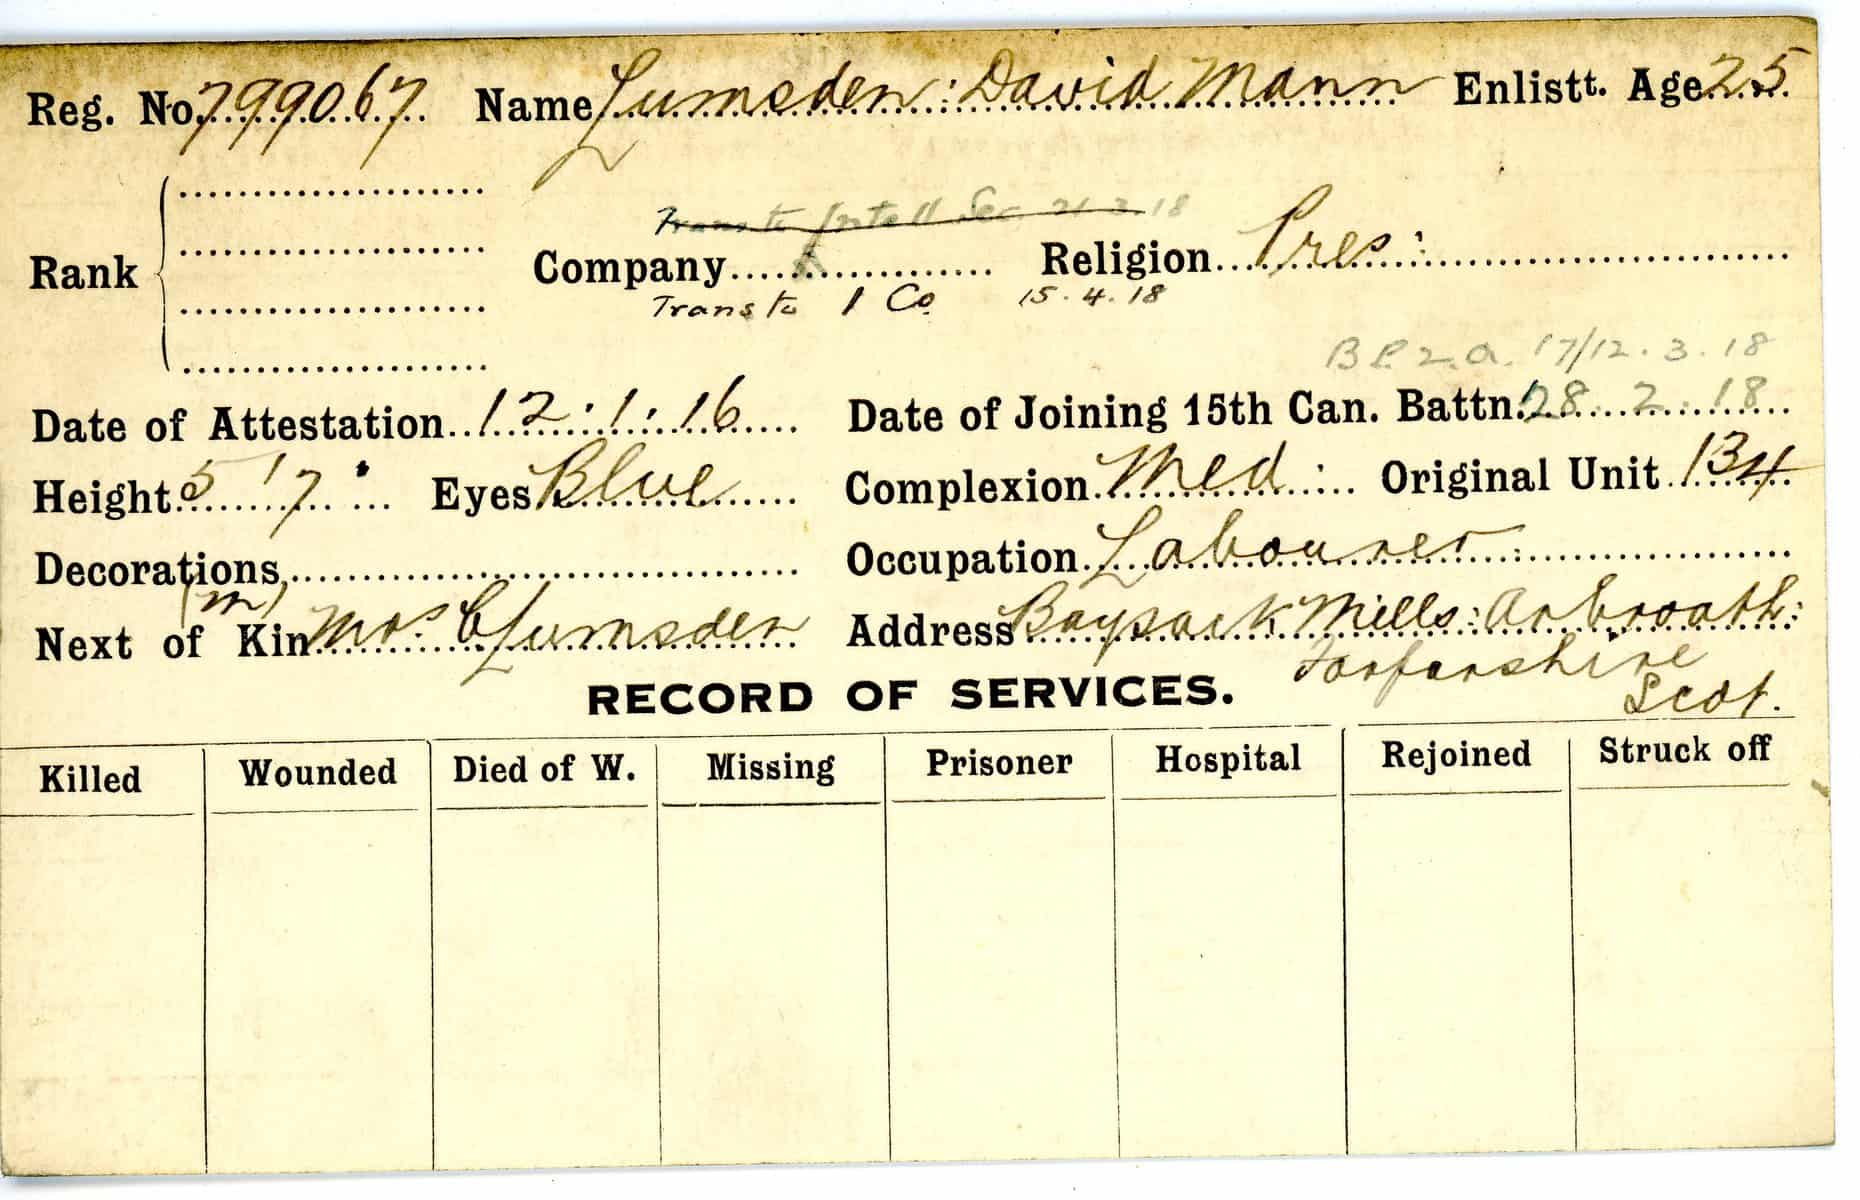 Reg. No. 799067 Name Lumsden: David Mann Enlistt. Age 25
Trans to Intell Sec 21 3 18
Rank Company Religion Pres:
Trans to 1 Co. 15.4.18
17/12.3.18
Date of Attestation 12:1:16 Date of Joining 15th Can. Battn. 28.2.18
Height 5'7" Eyes Blue Complexion Med: Original Unit 134
Decorations Occupation Labourer:
(m)
Next of Kin Mrs. C Lumsden Address Baysack Mills: Arbroath:
Forfarshire
Scot.
RECORD OF SERVICES.
Killed Wounded Died of W. Missing Prisoner Hospital Rejoined Struck off